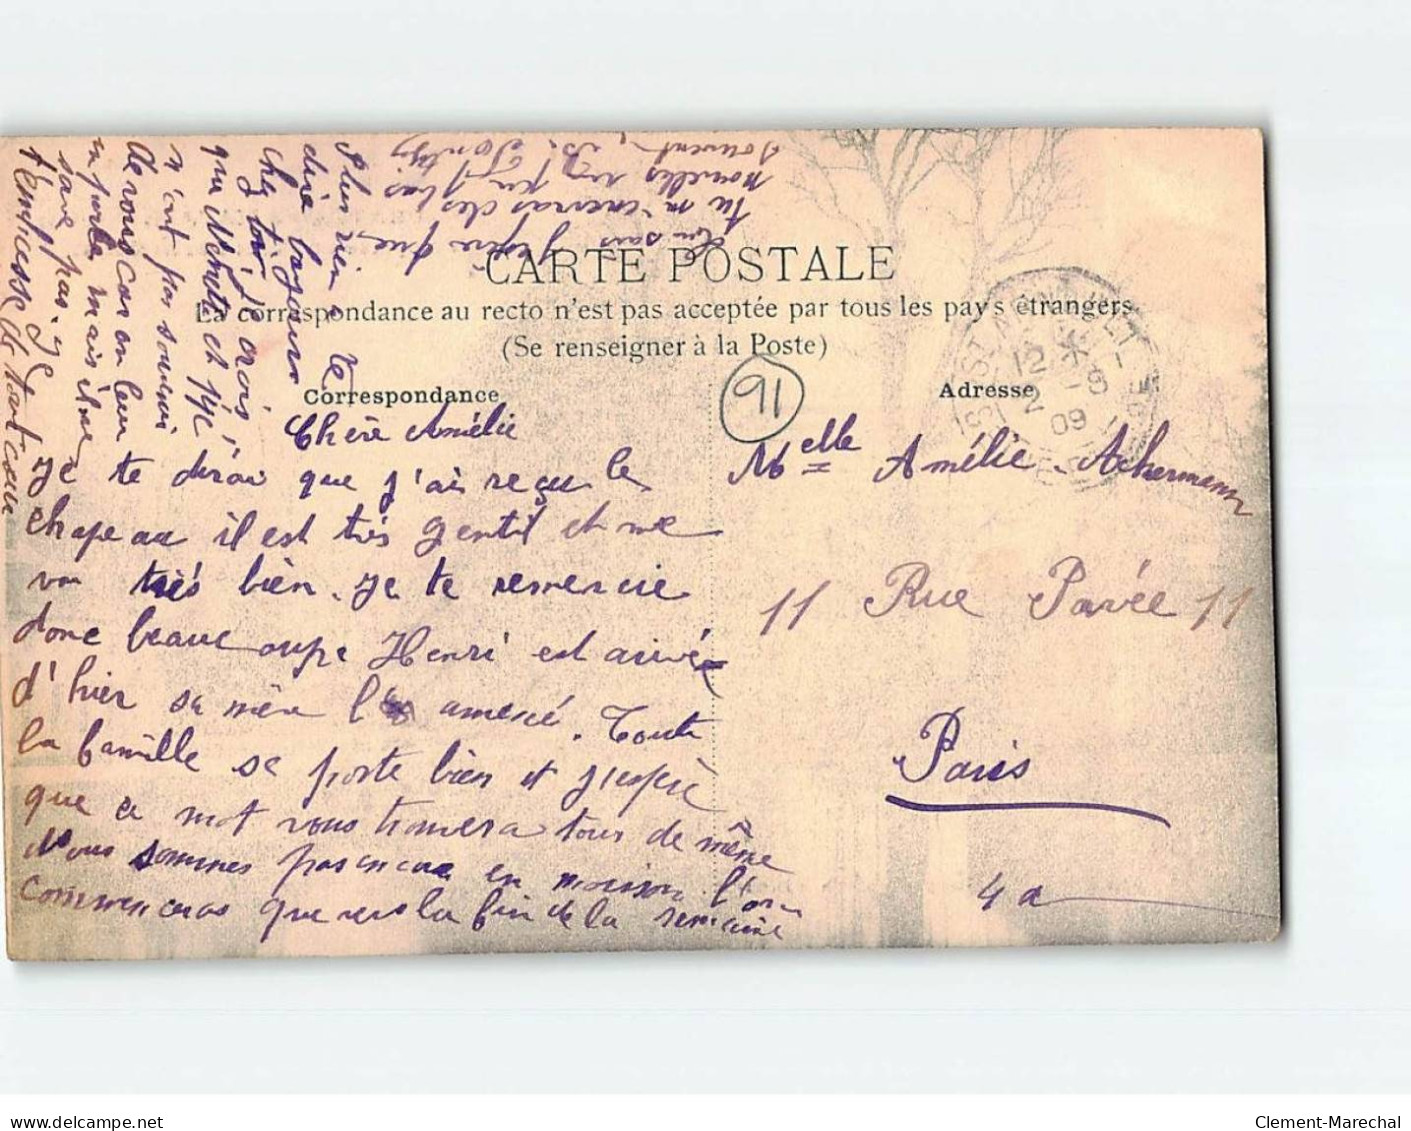 CARTE POSTALE
La correspondance au recto n'est pas acceptée par tous les pays étrangers
(Se renseigner à la Poste)
Correspondance
Adresse
91
12
2 - 8
09
Chère Amélie
Je te dirai que j'ai reçu le
chapeau il est très gentil et me
va très bien. Je te remercie
donc beaucoupe Henri est arrivé
d'hier sa mère l'a amené. Toute
la famille se porte bien et j'espère
que ce mot vous trouvera tous de même
Nous sommes pas encore en moison l'on
commenceras que vers la fin de la semaine
Plus rien a te
dire bonjour
chez toi
que
n'ont pas souvenir
de vous car on leur
en parle mais il ne
save pas. Je
t'embrasse de tout cœur
j'espère que
Tu m'enveras des
nouvelles un peu plus
souvent
Melle Amélie Achermenn
11 Rue Pavée 11
Paris
4 a
Clement-Marechal